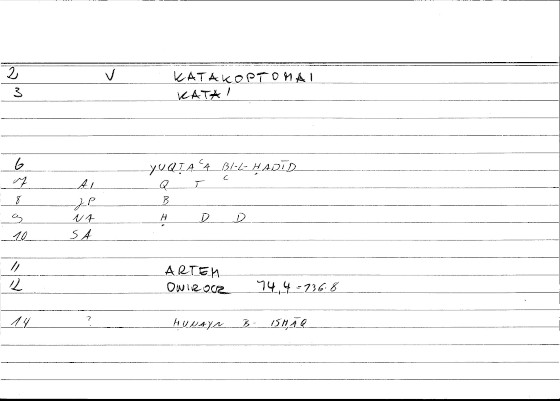 2 V KATAKOPTOMAI
3 KATA/
6 YUQṬAʿA BI-L-ḤADĪD
7 AI Q Ṭ ʿ
8 JP B
9 NA Ḥ D D
10 SA
11 ARTEM
12 ONIROCR 74,4 = 136.8
14 ? ḤUNAYN B. ISḤĀQ